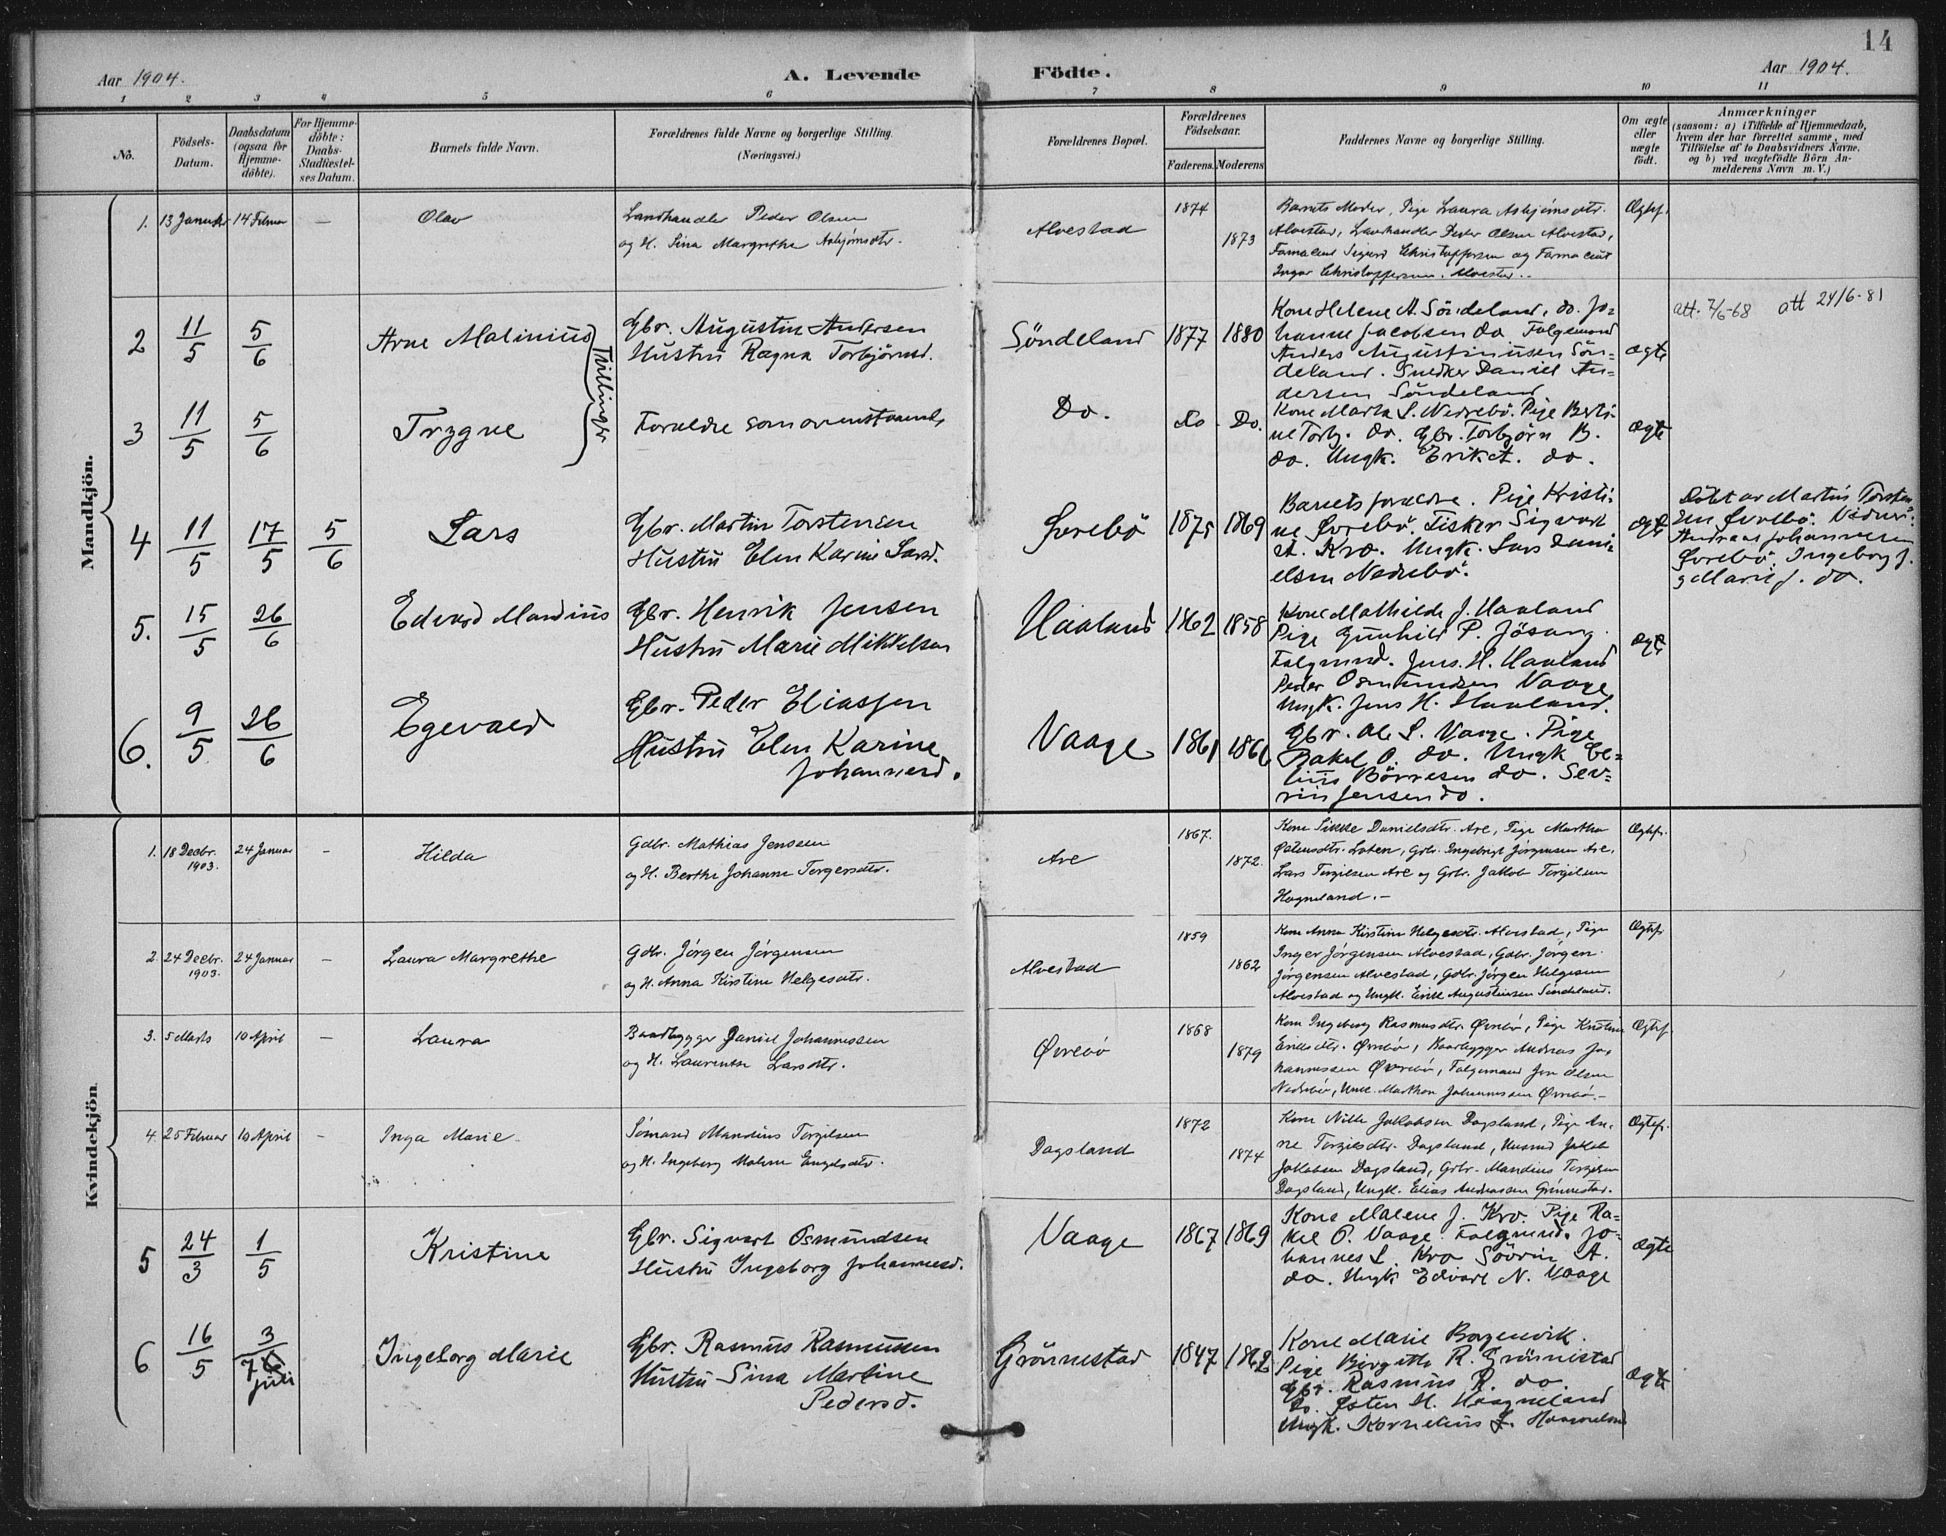 14
Aar 1904.
A. Levende Födte.
Aar 1904.
1 2 3 4 5 6 7 8 9 10 11
No.
Födsels-
Datum.
Daabsdatum
(ogsaa for
Hjemme-
döbte).
For Hjemme-
döbte:
Daabs-
Stadfæstel-
ses Datum.
Barnets fulde Navn.
Forældrenes fulde Navne og borgerlige Stilling.
(Næringsvei.)
Forældrenes Bopæl.
Forældrenes
Födselsaar.
Faderens. Moderens.
Faddernes Navne og borgerlige Stilling.
Om ægte
eller
uægte
födt.
Anmærkninger
(saasom: a) i Tilfælde af Hjemmedaab,
hvem der har forrettet samme, med
Tilföielse af to Daabsvidners Navne,
og b) ved uægtefödte Börn An-
melderens Navn m. V.)
Mandkjön.
1. 13 Januar 14 Februar — Olav
Landhandler Peder Olsen
og H. Sina Margrethe Asbjørnsdtr.
Alvestad
1874
1873
Barnets Moder, Pige Laura Asbjørnsdtr.
Alvestad, Landhandler Peder Olsen Alvestad,
Farmaceut Sigurd Christoffersen og Farmaceut
Ingar Christoffersen, Alvestad.
Ægtef.
2 11/5 5/6 Arne Malinius
Gbr. Augustin Andersen
Hustru Ragna Torbjörnsd.
Söndeland 1877 1880
Kone Helene A. Söndeland, do. Jo-
hanne Jacobsen do. Folgemand
Anders Augustinussen Sön-
deland. Snedker Daniel An-
dersen Söndeland
ægte
att. 7/6-68 att 24/6-81
Tvillinger
3 11/5 5/6 Trygve
Foreldre som ovenstaaende
Do. do Do.
Kone Marta S. Nedrebö. Pige Berti-
ne Torb. do. Gbr. Torbjörn B.
do. Ungk. Erik A. do.
ægte
4 11/5 17/5 5/6 Lars
Gbr. Martin Torstensen
Hustru Elen Karine Larsd.
Övrebö 1875 1869
Barnets foreldre. Pige Kristi-
ne Övrebö. Fisker Sigvart
A. Kro. Ungk. Lars Dani-
elsen Nedrebö.
ægte
Döbt av Martin Torsten
sen Övrebö. Vidner:
Andreas Johannesen
Övrebö. Ingeborg J.
g Marie J. do.
5. 15/5 26/6 Edvard Mandius
Gbr. Henrik Jensen
Hustru Marie Mikkelsen
Haaland 1862 1858
Kone Mathilde J. Haaland
Pige Gunhild P. Jösang.
Folgmnd. Jens. H. Haaland
Peder Osmundsen Vaage
Ungk. Jens H. Haaland.
ægte
6. 9/5 26/6 Egevald
Gbr. Peder Eliassen
Hustru Elen Karine
Johannesd.
Vaage 1861 1866
Gbr. Ole S. Vaage. Pige
Rakel O. do. Ungk. El-
lius Börresen do. Sev-
rin Jensen do.
Kvindekjön.
1. 18 Decbr. 24 Januar — Hilda
1903.
Gdbr. Mathias Jensen
og H. Berthe Johanne Torgersdtr.
Are
1867.
1872.
Kone Sikke Danielsdtr. Are, Pige Martha
Østensdtr. Loten, Grbr. Ingebrigt Jørgensen Are,
Lars Torgilsen Are og Grbr. Jakob Torgilsen
Hognaland.—
Ægtef.
2. 24 Decbr. 24 Januar — Laura Margrethe
1903.
Gdbr. Jørgen Jørgensen
og H. Anna Kirstine Helgesdtr.
Alvestad
1859
1862
Kone Anna Kirstine Helgesdtr. Alvestad, Pige
Inger Jørgensen Alvestad, Gdbr. Jørgen
Jørgensen Alvestad, Gdbr. Jørgen Helgesen
Alvestad og Ungk. Erik Augustinsen Søndeland.
Ægtef.
3. 5 Marts 10 April — Laura
Baadbygger Daniel Johannessen
og H. Laurentse Larsdtr.
Øvrebø
1868
1879
Kone Ingeborg Rasmusdtr. Øvrebø, Pige Kristine
Eriksdtr. Øvrebø, Baadbygger Andreas Jo-
hannessen Øvrebø, Folgemand Jon Olsen
Nedrebø, Ungk. Marthon Johannessen Øvrebø.—
Ægtef.
4. 25 Februar 10 April — Inga Marie
Sømand Mandius Torgilsen
og H. Ingeborg Malene Engelsdtr.
Dagsland
1872
1874
Kone Nille Jakobsen Dagsland, Pige An-
ne Torgilsdtr. Dagsland, Husmd Jakob
Jakobsen Dagsland, Grbr. Mandius Torgilsen
Dagsland, Ungk. Elias Andreassen Grønnestad.
Ægtef.
5 24/3 1/5 Kristine
Gbr. Sigvart Osmundsen
Hustru Ingeborg Johannesd.
Vaage 1867 1869
Kone Malene J. Kro. Pige Ra-
kel P. Vaage. Folgmnd. Jo-
hannes L. Kro Sövrin A.
do. Ungk Edvart N. Vaage
ægte
6 16/5 3/7 juli Ingeborg Marie
Gbr. Rasmus Rasmussen
Hustru Sina Martine
Pedersd.
Grönnestad 1847 1862
Kone Marie Borgenvik.
Pige Birgitte R. Grönnestad
Gbr. Rasmus R. do.
Do. Østen H. Haagneland
Ungk. Kornelius L. Haagneland
ægte